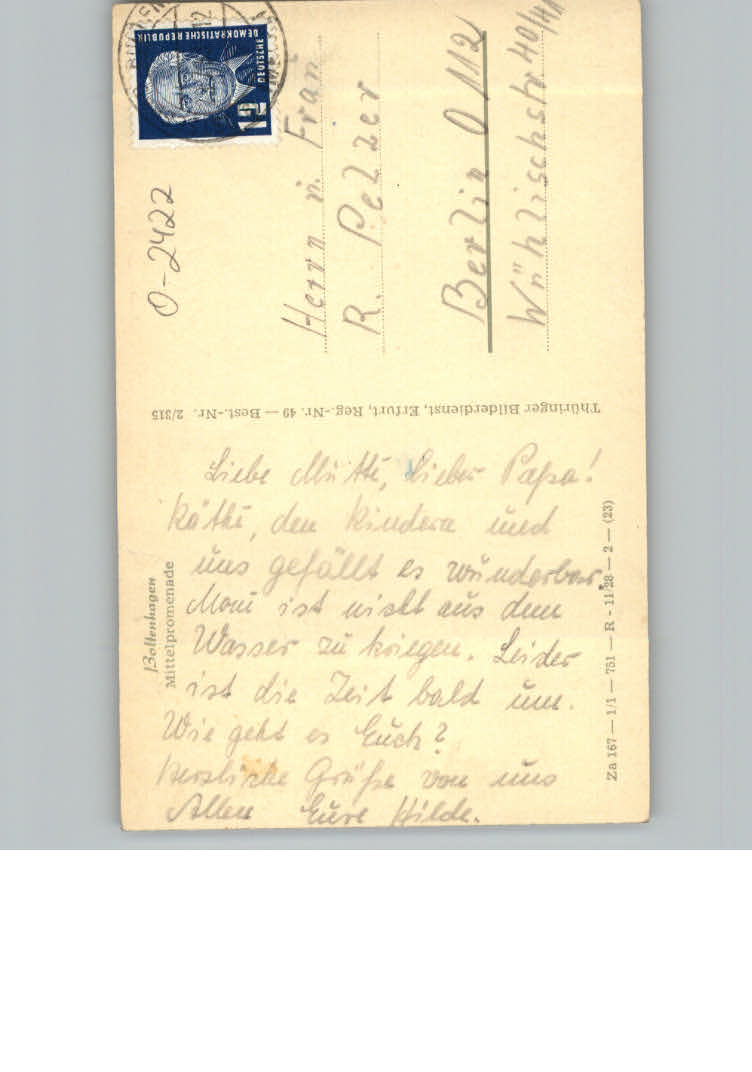 Boltenhagen
Mittelpromenade
Liebe Mutti, Lieber Papa!
Käthi, den Kindern und
uns gefällt es wunderbar.
Moni ist nicht aus dem
Wasser zu kriegen. Leider
ist die Zeit bald um.
Wie geht es Euch?
Herzliche Grüße von uns
Allen Eure Hilde.
Thüringer Bilderdienst, Erfurt, Reg.-Nr. 49 — Best.-Nr. 2/315
Za 167 — 1/1 — 751 — R - 11/28 — 2 — (23)
O-2422
DEUTSCHE
DEMOKRATISCHE REPUBLIK
12
Herrn u. Frau
R. Pelzer
Berlin O 112
Wühlischstr. 40/41